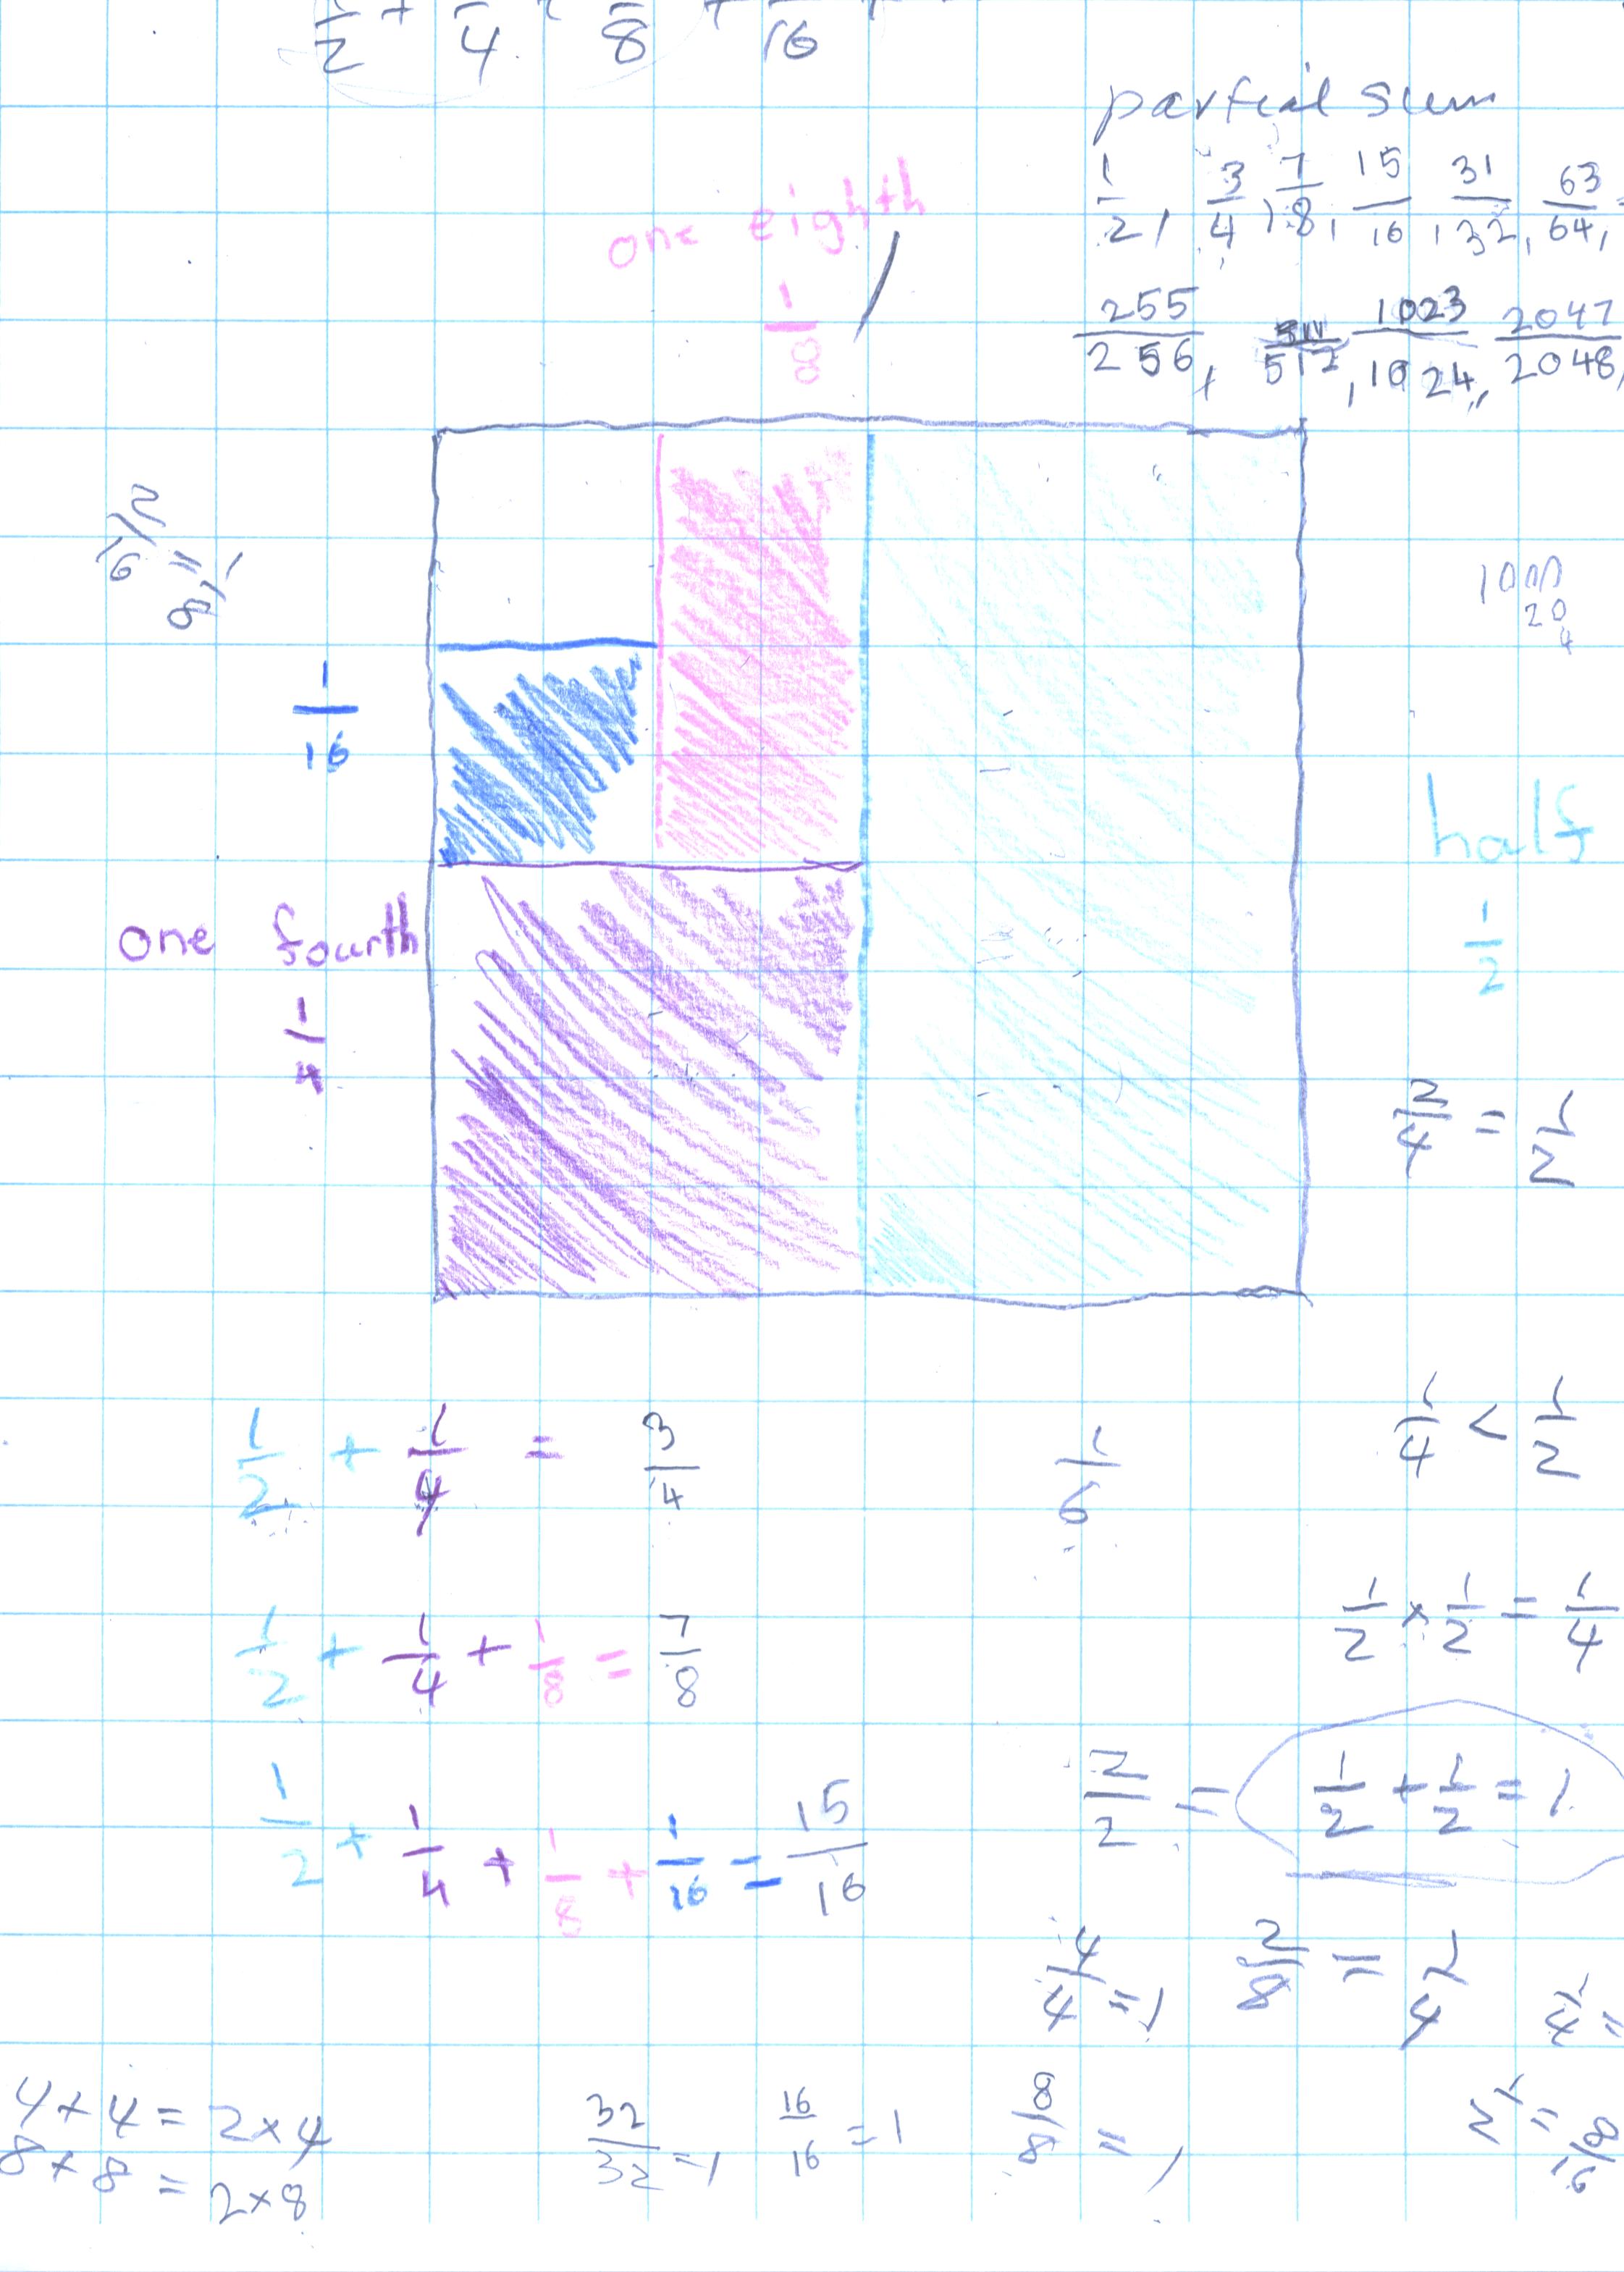 1/2 + 1/4 + 1/8 + 1/16 +
partial sum
1/2, 3/4, 7/8, 15/16, 31/32, 63/64,
255/256, 511/512, 1023/1024, 2047/2048,
one eighth
1/8
2/16 = 1/8
1/16
half
1/2
one fourth
1/4
2/4 = 1/2
1/2 + 1/4 = 3/4
1/6
1/4 < 1/2
1/2 × 1/2 = 1/4
1/2 + 1/4 + 1/8 = 7/8
2/2 = 1/2 + 1/2 = 1
1/2 + 1/4 + 1/8 + 1/16 = 15/16
4/4 = 1
2/8 = 1/4
1/4 =
4 + 4 = 2 × 4
8 + 8 = 2 × 8
32/32 = 1
16/16 = 1
8/8 = 1
1/2 = 8/16